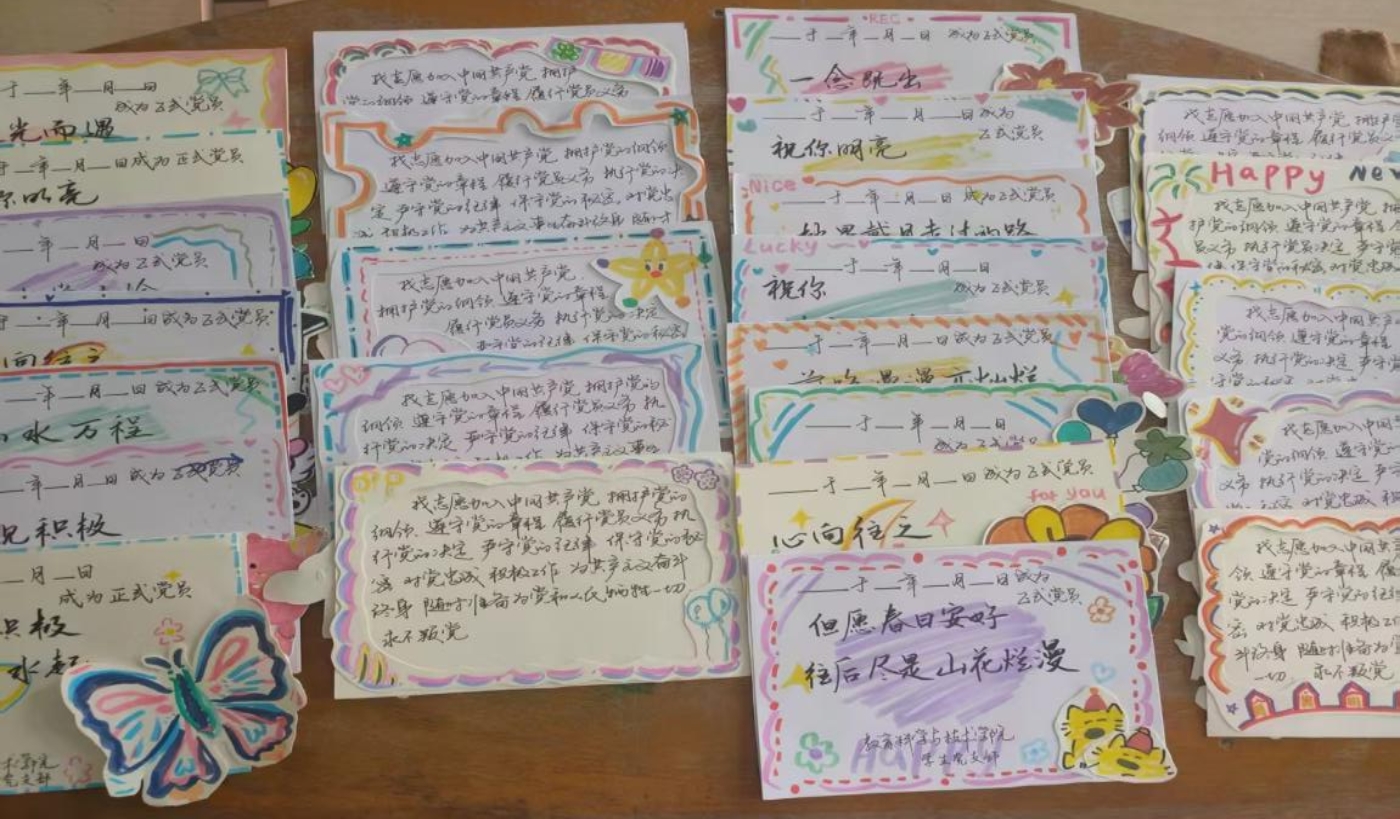 于__年__月__日
成为正式党员
光而遇
于__年__月__日成为正式党员
你明亮
__年__月__日
成为正式党员
__年__月__日成为正式党员
心向往之
__年__月__日成为正式党员
山水万程
__年__月__日成为正式党员
见积极
__月__日
成为正式党员
积极
水起
我志愿加入中国共产党 拥护
党的纲领 遵守党的章程 履行党员义务
我志愿加入中国共产党 拥护党的纲领
遵守党的章程 履行党员义务 执行党的决
定 严守党的纪律 保守党的秘密 对党忠
诚 积极工作 为共产主义事业奋斗终身 随时
我志愿加入中国共产党
拥护党的纲领 遵守党的章程
履行党员义务 执行党的决定
严守党的纪律 保守党的秘密
我志愿加入中国共产党 拥护党的
纲领 遵守党的章程 履行党员义务 执
行党的决定 严守党的纪律 保守党的秘
我志愿加入中国共产党 拥护党的
纲领 遵守党的章程 履行党员义务 执
行党的决定 严守党的纪律 保守党的秘
密 对党忠诚 积极工作 为共产主义奋斗
终身 随时准备为党和人民牺牲一切
永不叛党
REC
__于__年__月__日 成为正式党员
一念既出
__于__年__月__日成为
正式党员
祝你明亮
Nice
__于__年__月__日 成为正式党员
Lucky
__于__年__月__日
成为正式党员
祝你
__于__年__月__日成为正式党员
__于__年__月__日
成为正式党员
__于__年__月__日成为正式党员
for you
心向往之
__于__年__月__日成为
正式党员
但愿春日安好
往后尽是山花烂漫
教育科学与技术学院
学生党支部
Happy
我志愿加入中国共产党 拥护
纲领 遵守党的章程 履行党员义
Happy New
我志愿加入中国共产党 拥
护党的纲领 遵守党的章程
员义务 执行党员决定 严守
保守党的秘密 对党忠诚
我志愿加入中国共产
党的纲领 遵守党的章程
义务 执行党的决定 严守
我志愿加入中国
党的纲领 遵守党
义务 执行党的决定 严
我志愿加入中国共
领 遵守党的章程 履
党的决定 严守党的纪
密 对党忠诚 积极工作
斗终身 随时准备为党
一切 永不叛党